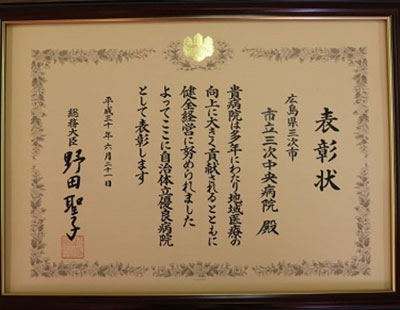 表彰状
広島県三次市
市立三次中央病院 殿
貴病院は多年にわたり地域医療の
向上に大きく貢献されるとともに
健全経営に努められました
よってここに自治体立優良病院
として表彰します
平成三十年六月二十一日
総務大臣 野田聖子